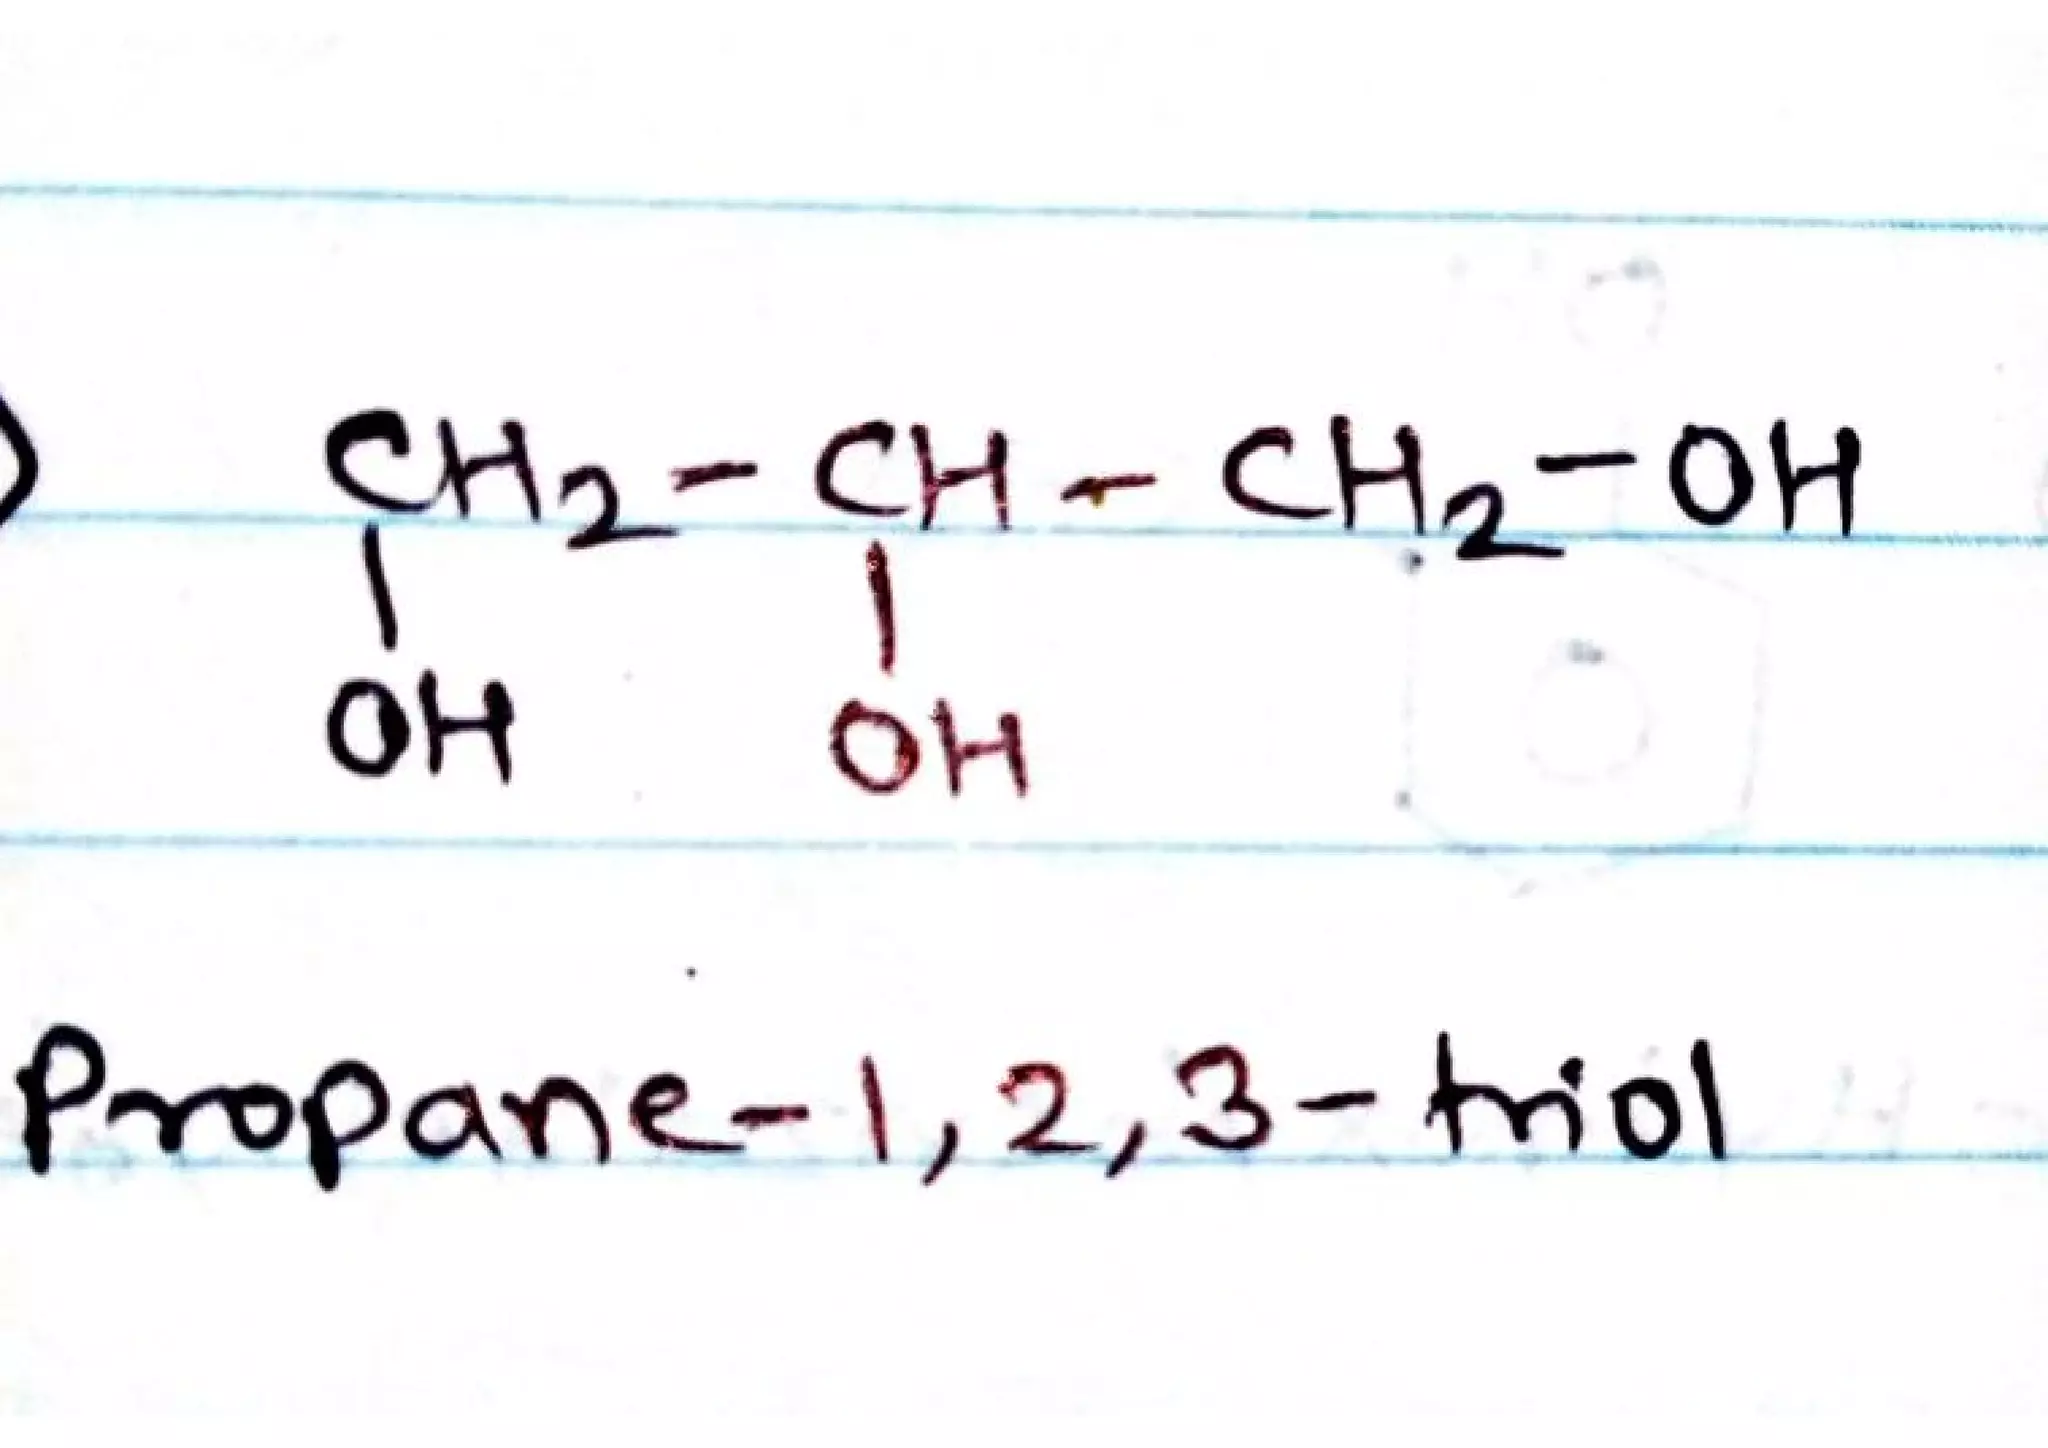 ) CH₂ - CH - CH₂ - OH
| |
OH OH
Propane-1,2,3-triol